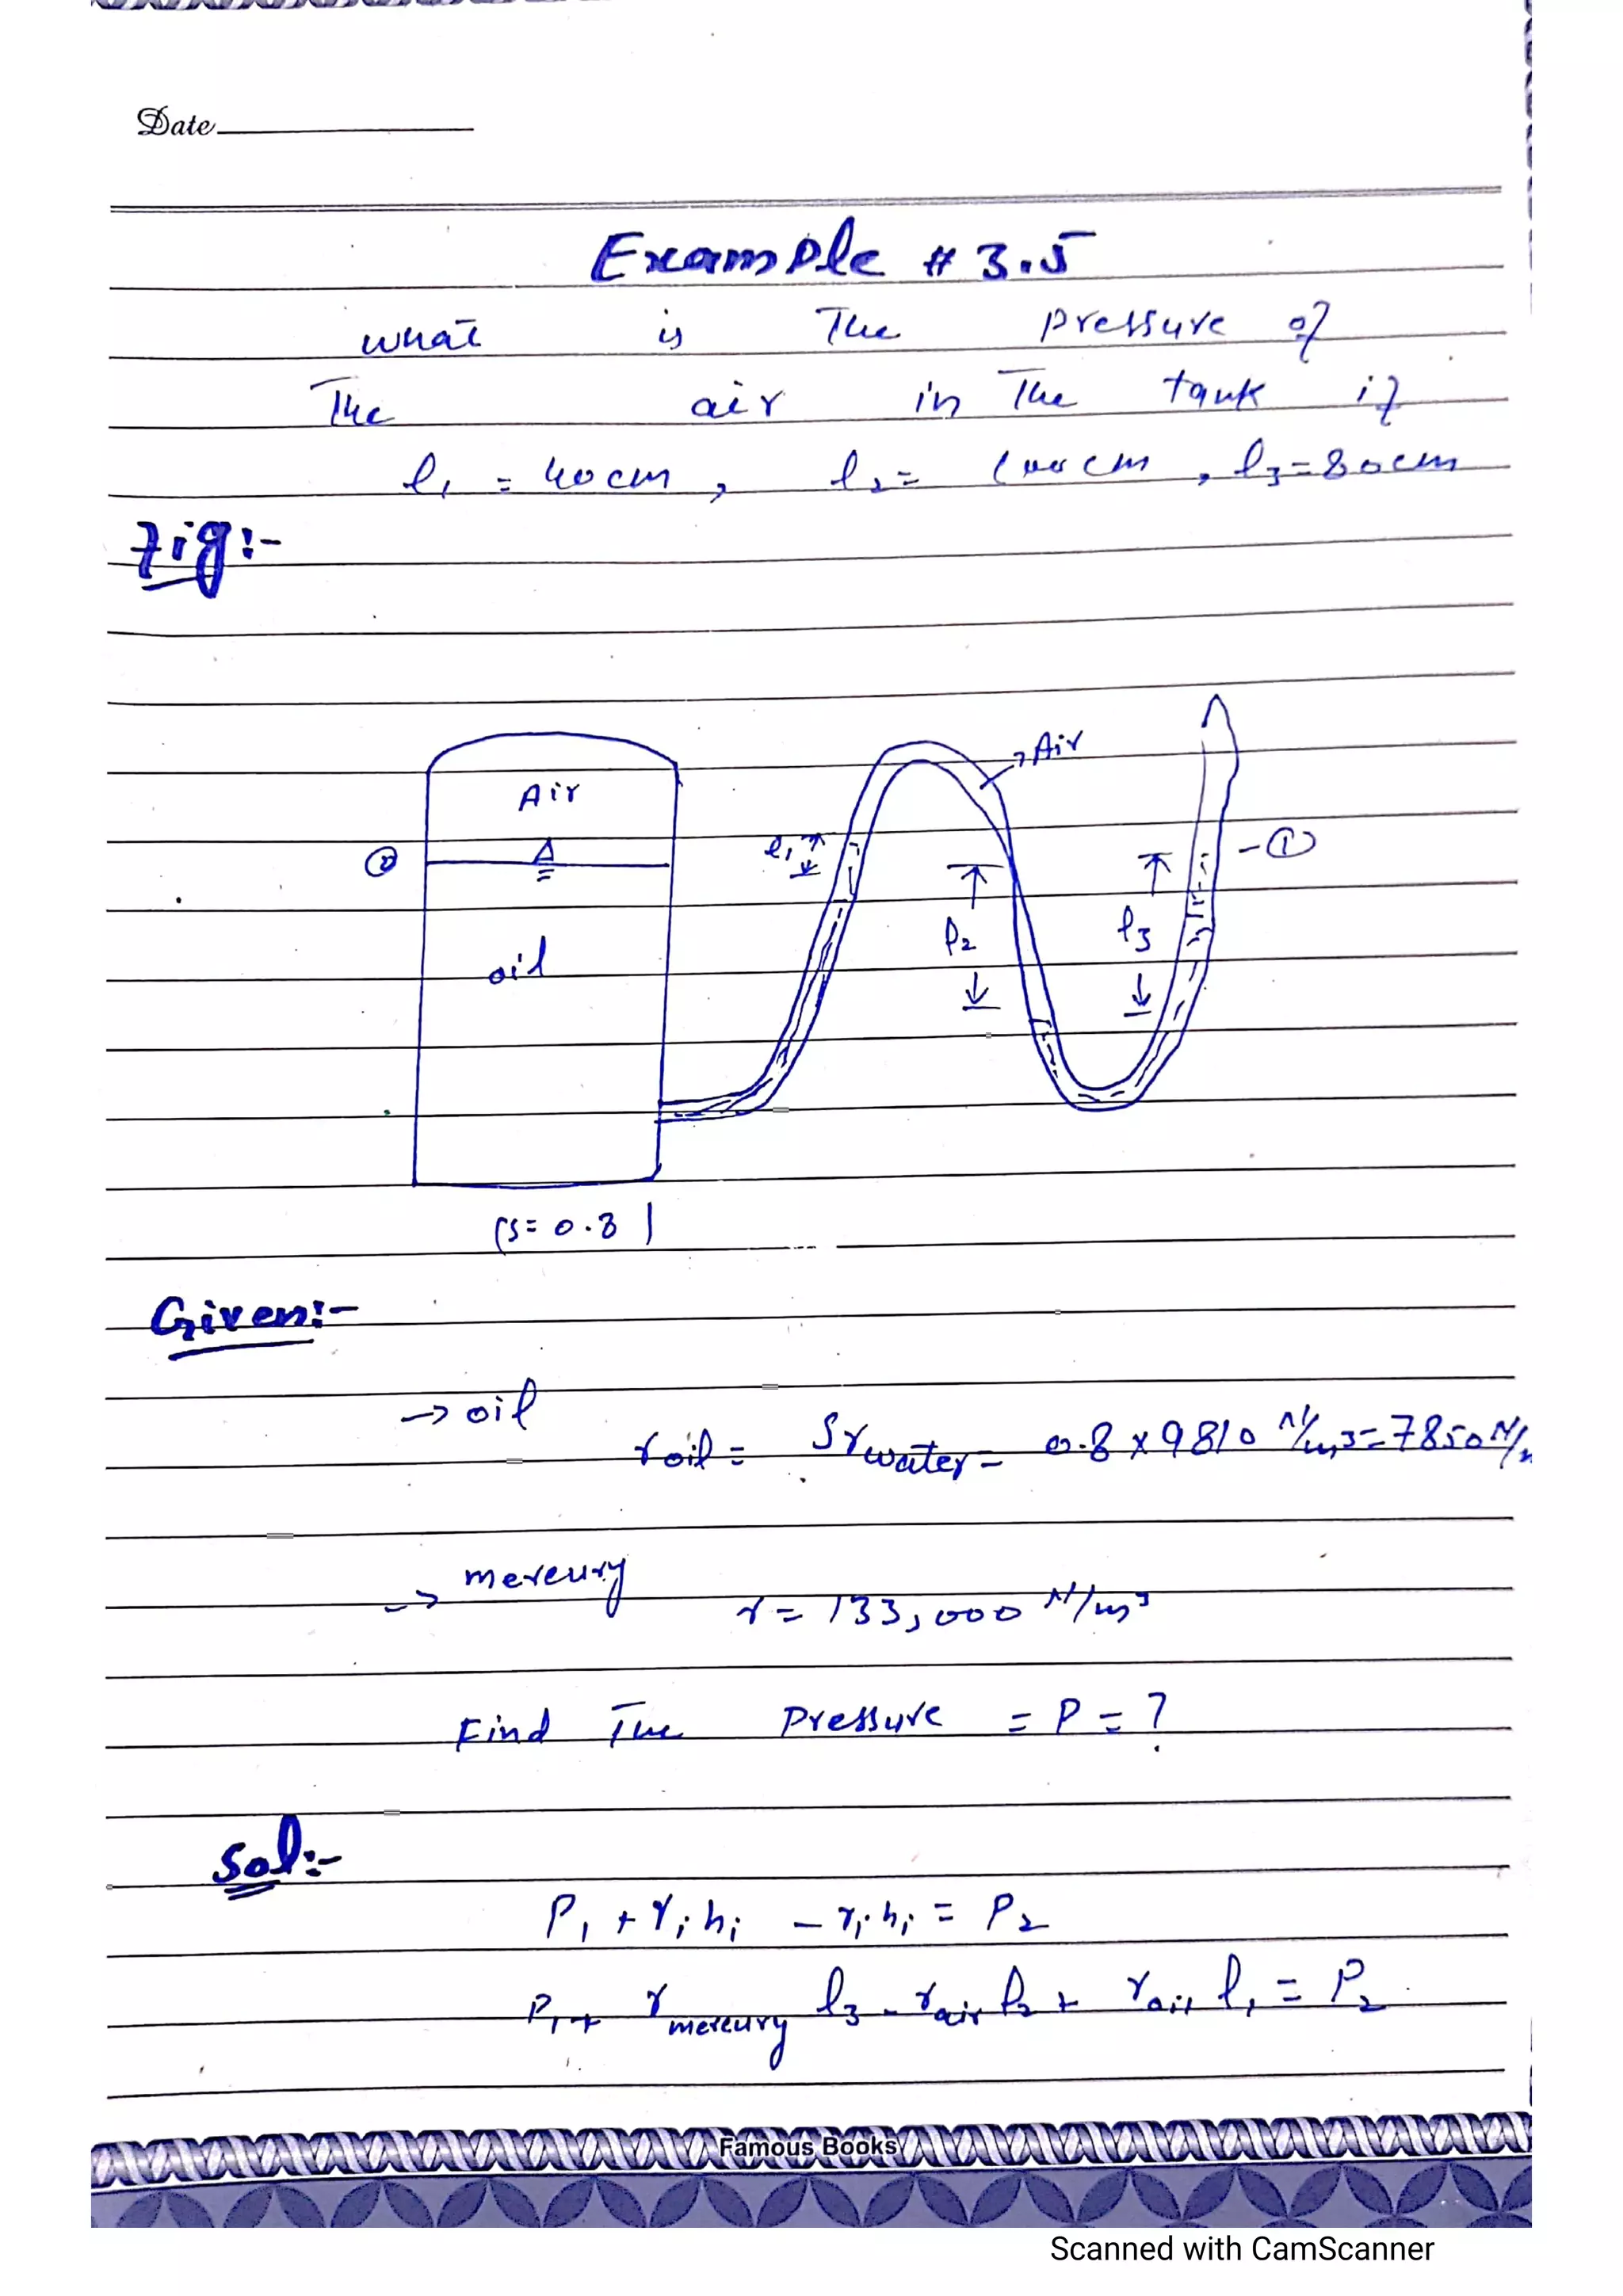 Date
Example # 3.5
what is The pressure of
The air in The tank if
l₁ = 40cm, l₂ = 100cm, l₃=80cm
Fig:-
Air
Air
l₁
②
①
l₂
l₃
oil
(s= 0.8)
Given:-
→ oil
γoil = Sγwater = 0.8 x 9810 N/m³=7850N/
→ mercury
γ = 133,000 N/m³
Find The Pressure = P = ?
Sol:-
P₁ + γᵢhᵢ - γᵢhᵢ = P₂
P₁ + γmercury l₃ - γair l₂ + γoil l₁ = P₂
Famous Books
Scanned with CamScanner